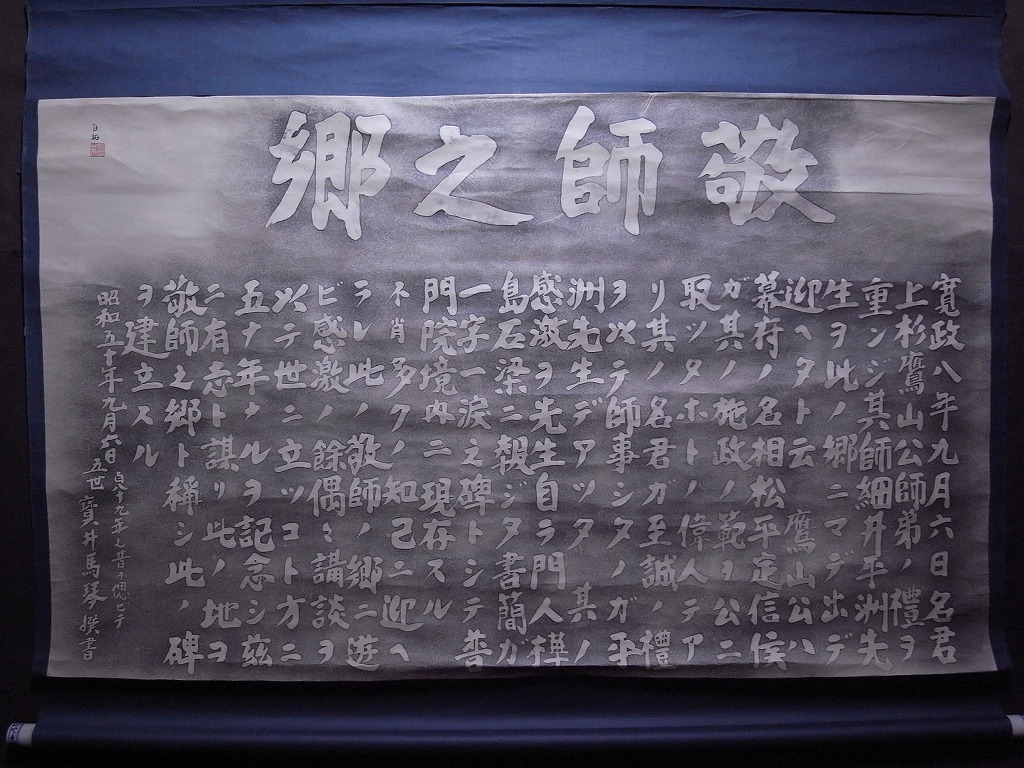 敬師之郷
寛政八年九月六日名君
上杉鷹山公師弟ノ禮ヲ
重ンジ其師細井平洲先
生ヲ此ノ郷ニマデ出デ
迎ヘタト云 鷹山公ハ
幕府ノ名相松平定信侯
ガ其ノ施政ノ範ヲ公ニ
取ツタホトノ偉人テア
リ其ノ名君ガ至誠ノ禮
ヲ以テ師事シタノガ平
洲先生デアツタ 其ノ
感激ヲ先生自ラ門人樺
島石梁ニ報ジタ書簡ガ
一字一涙之碑トシテ普
門院境内ニ現存スル
不肖多クノ知己ニ迎ヘ
ラレ此ノ敬師ノ郷ニ遊
ビ感激ノ餘偶〻講談ヲ
以テ世ニ立ツコト方ニ
五十年ナルヲ記念シ茲
ニ有志ト謀リ此ノ地ヲ
敬師之郷ト稱シ此ノ碑
ヲ建立スル
昭和五十年九月六日
百七十九年之昔ヲ偲ビテ
五世寶井馬琴 撰書